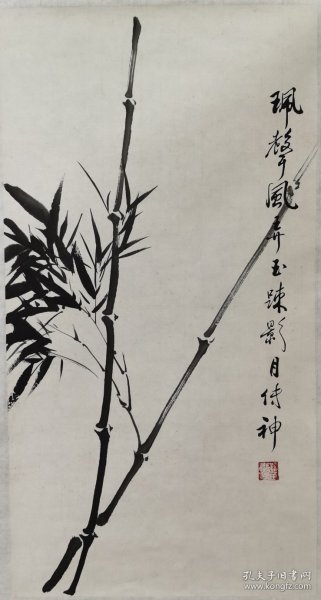 珮聲風弄玉踈影月傳神
孔夫子旧书网
www.kongfz.com